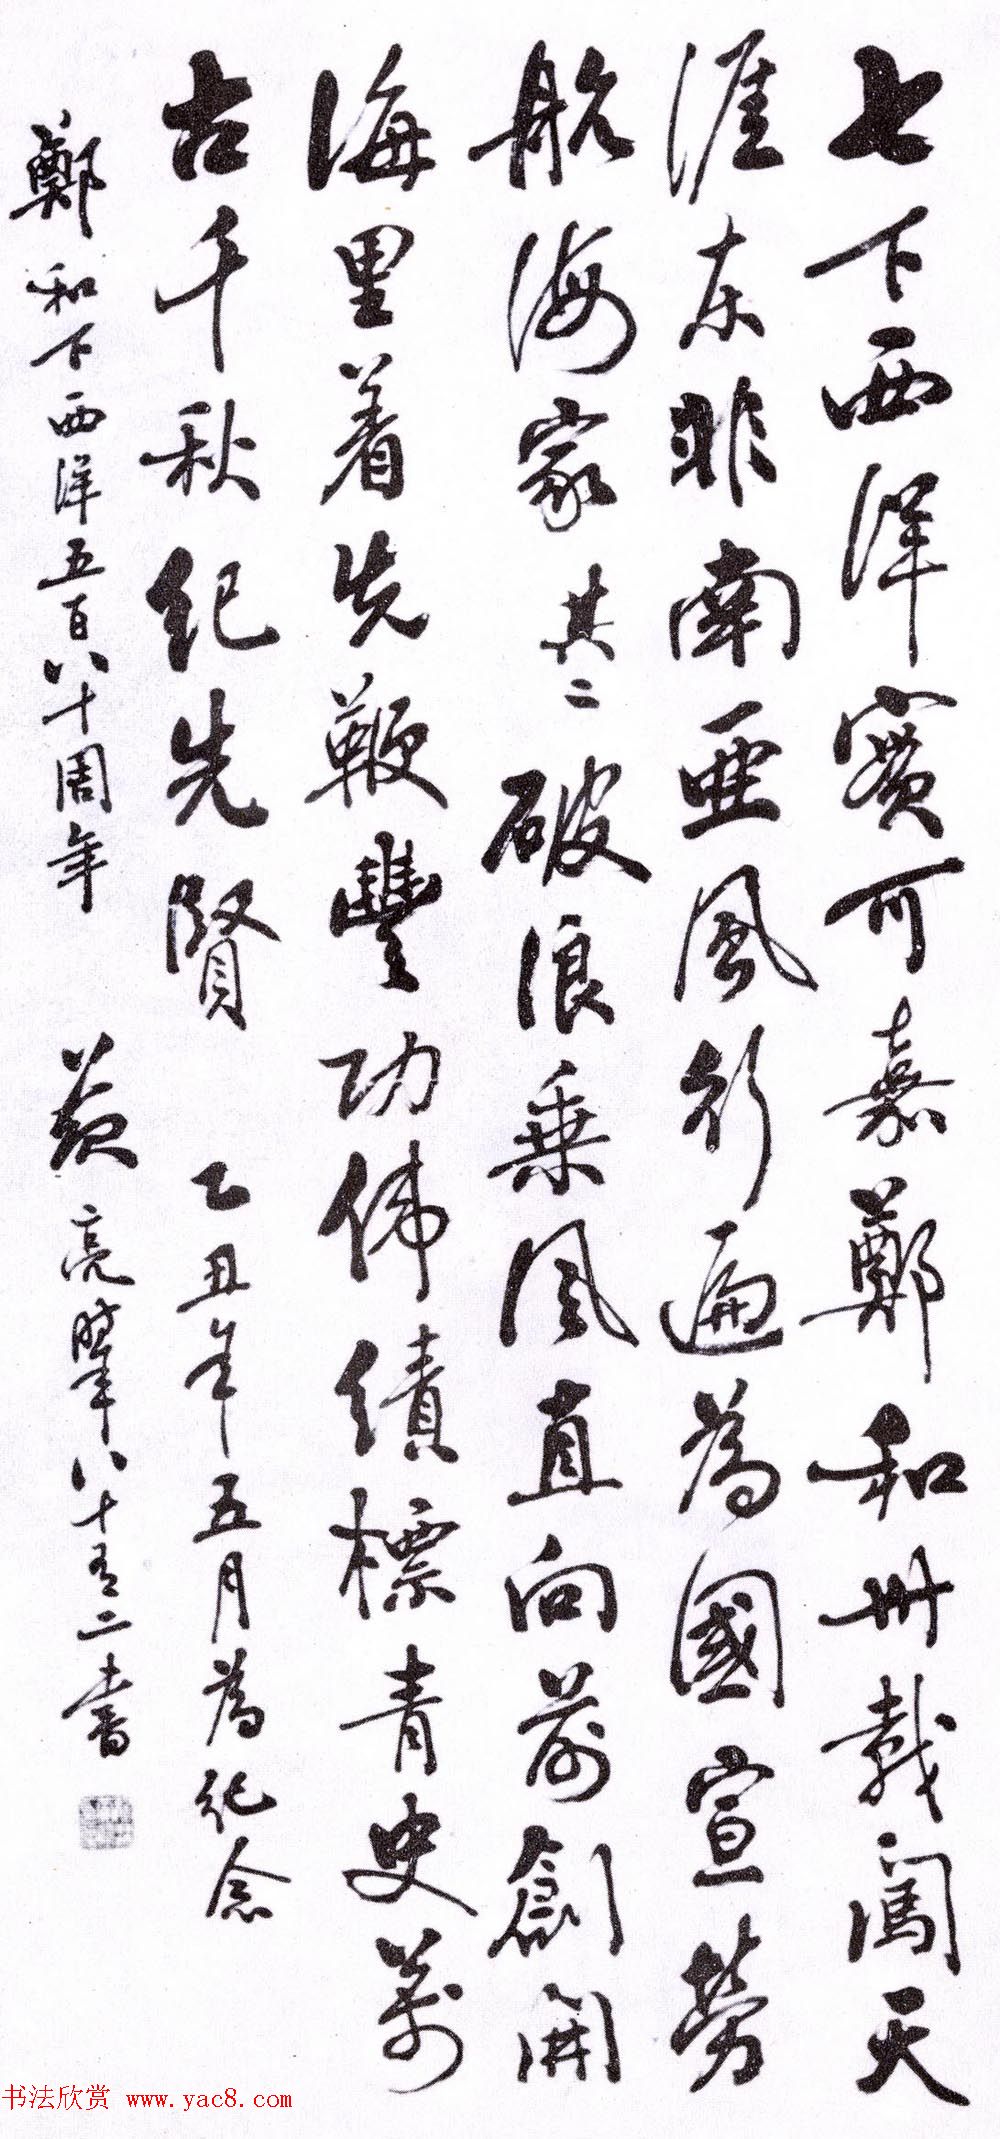 七下西洋實可嘉鄭和卅載闖天
涯东非南亜風行遍為國宣勞
航海家其二破浪乗風直向前創開
海里着先鞭豐功伟績標青史萬
古千秋纪先賢
乙丑年五月為纪念
鄭和下西洋五百八十周年
蘇亮肇八十有二書
书法欣赏 www.yac8.com